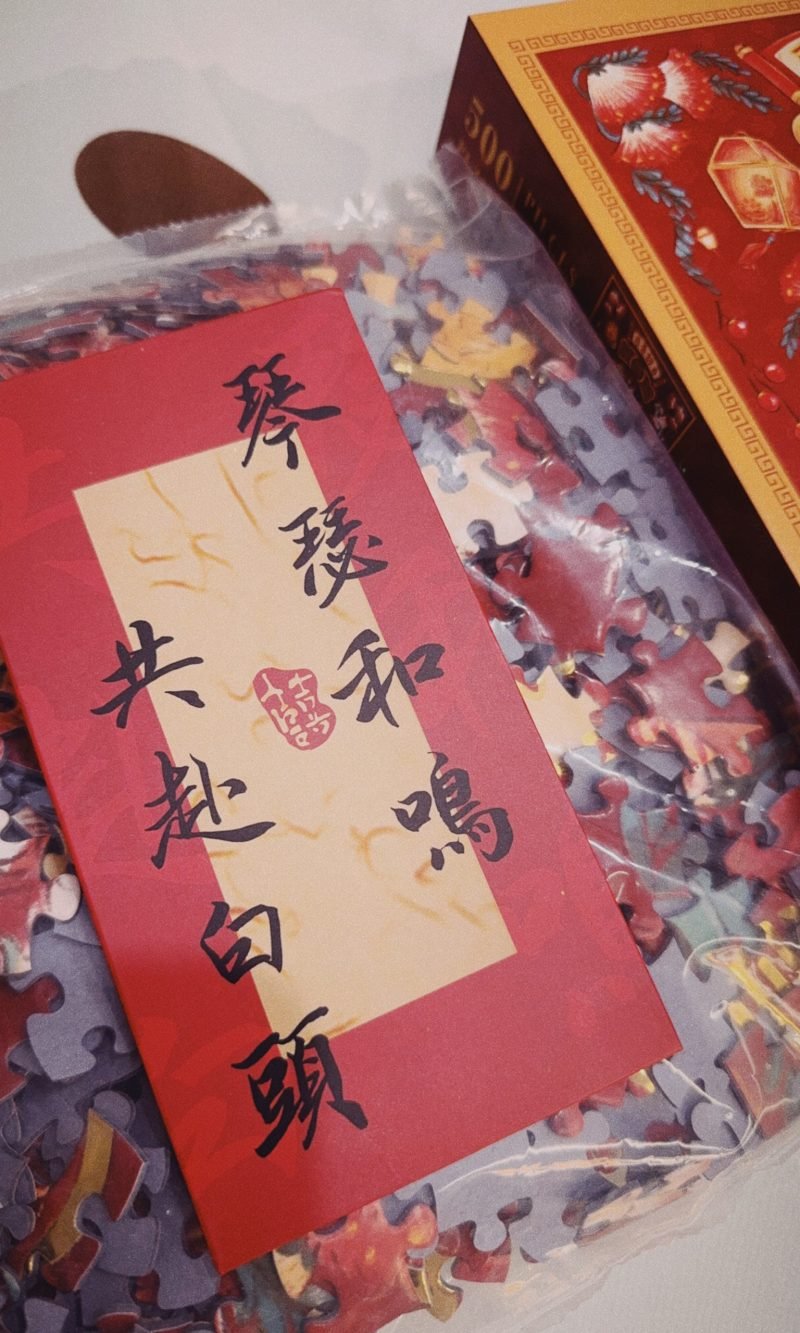 琴瑟和鳴
共赴白頭
囍
500
PIECES